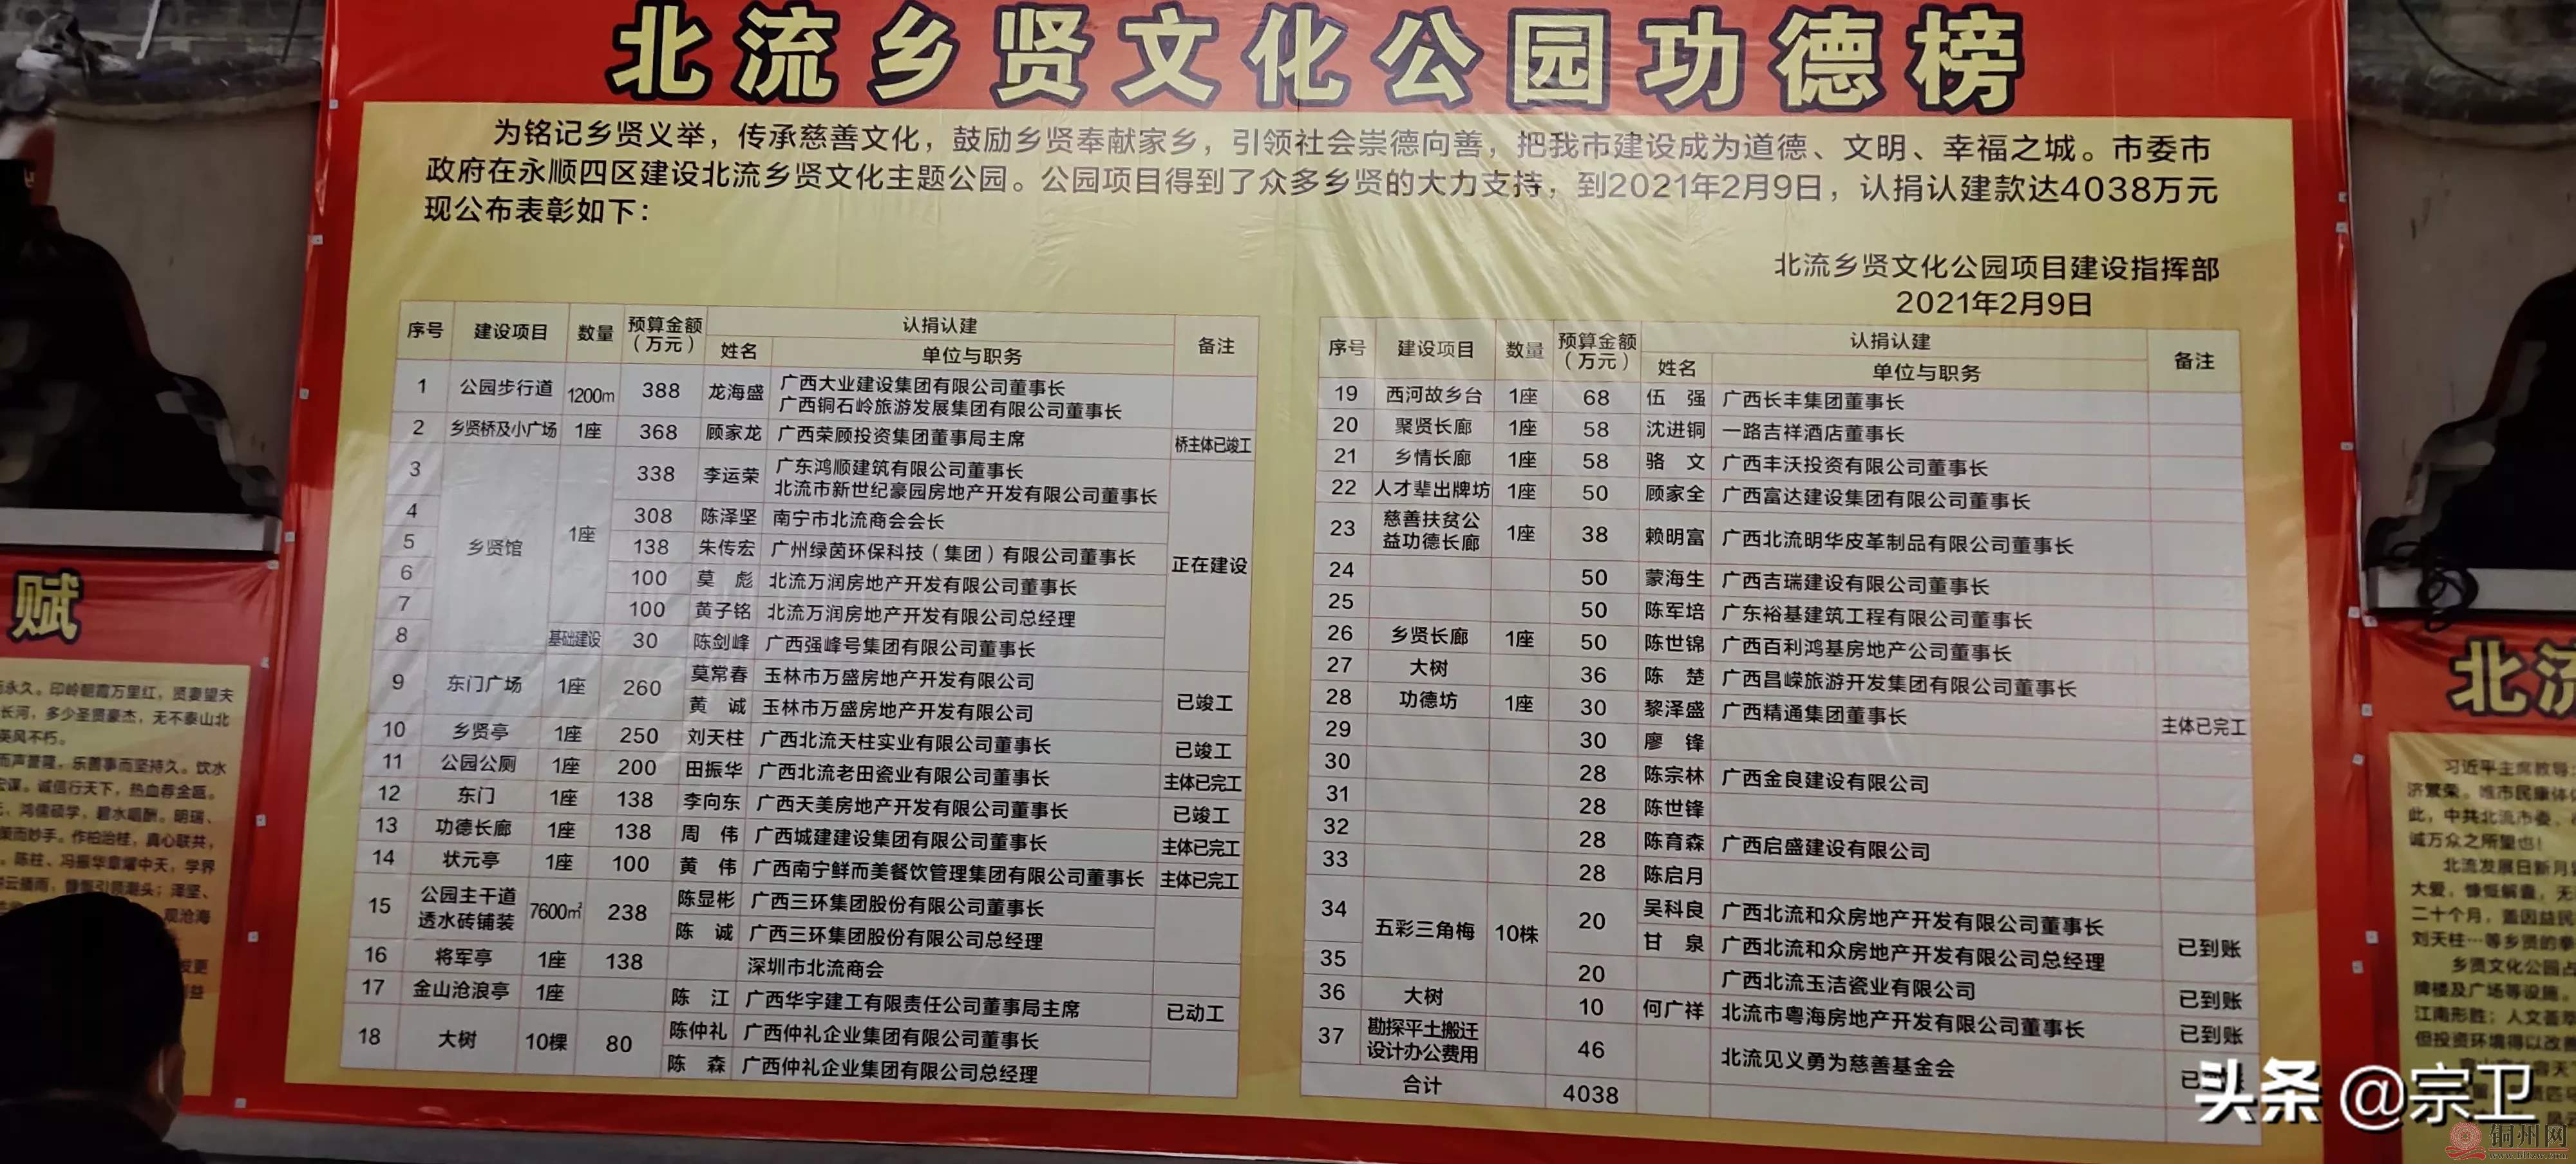 北流乡贤文化公园功德榜
为铭记乡贤义举，传承慈善文化，鼓励乡贤奉献家乡，引领社会崇德向善，把我市建设成为道德、文明、幸福之城。市委市
政府在永顺四区建设北流乡贤文化主题公园。公园项目得到了众多乡贤的大力支持，到2021年2月9日，认捐认建款达4038万元
现公布表彰如下：
北流乡贤文化公园项目建设指挥部
2021年2月9日
序号 建设项目 数量 预算金额（万元） 认捐认建 备注
姓名 单位与职务
1 公园步行道 1200m 388 龙海盛 广西大业建设集团有限公司董事长
广西铜石岭旅游发展集团有限公司董事长
2 乡贤桥及小广场 1座 368 顾家龙 广西荣顾投资集团董事局主席 桥主体已竣工
3 乡贤馆 1座 338 李运荣 广东鸿顺建筑有限公司董事长
北流市新世纪豪园房地产开发有限公司董事长
4 308 陈泽坚 南宁市北流商会会长
5 138 朱传宏 广州绿茵环保科技（集团）有限公司董事长 正在建设
6 100 莫彪 北流万润房地产开发有限公司董事长
7 100 黄子铭 北流万润房地产开发有限公司总经理
8 基础建设 30 陈剑峰 广西强峰号集团有限公司董事长
9 东门广场 1座 260 莫常春 玉林市万盛房地产开发有限公司 已竣工
黄诚 玉林市万盛房地产开发有限公司
10 乡贤亭 1座 250 刘天柱 广西北流天柱实业有限公司董事长 已竣工
11 公园公厕 1座 200 田振华 广西北流老田瓷业有限公司董事长 主体已完工
12 东门 1座 138 李向东 广西天美房地产开发有限公司董事长 已竣工
13 功德长廊 1座 138 周伟 广西城建建设集团有限公司董事长 主体已完工
14 状元亭 1座 100 黄伟 广西南宁鲜而美餐饮管理集团有限公司董事长 主体已完工
15 公园主干道透水砖铺装 7600㎡ 238 陈显彬 广西三环集团股份有限公司董事长
陈诚 广西三环集团股份有限公司总经理
16 将军亭 1座 138 深圳市北流商会
17 金山沧浪亭 1座 陈江 广西华宇建工有限责任公司董事局主席 已动工
18 大树 10棵 80 陈仲礼 广西仲礼企业集团有限公司董事长
陈森 广西仲礼企业集团有限公司总经理
序号 建设项目 数量 预算金额（万元） 认捐认建 备注
姓名 单位与职务
19 西河故乡台 1座 68 伍强 广西长丰集团董事长
20 聚贤长廊 1座 58 沈进铜 一路吉祥酒店董事长
21 乡情长廊 1座 58 骆文 广西丰沃投资有限公司董事长
22 人才辈出牌坊 1座 50 顾家全 广西富达建设集团有限公司董事长
23 慈善扶贫公益功德长廊 1座 38 赖明富 广西北流明华皮革制品有限公司董事长
24 50 蒙海生 广西吉瑞建设有限公司董事长
25 50 陈军培 广东裕基建筑工程有限公司董事长
26 乡贤长廊 1座 50 陈世锦 广西百利鸿基房地产公司董事长
27 大树 36 陈楚 广西昌嵘旅游开发集团有限公司董事长
28 功德坊 1座 30 黎泽盛 广西精通集团董事长 主体已完工
29 30 廖锋
30 28 陈宗林 广西金良建设有限公司
31 28 陈世锋
32 28 陈育森 广西启盛建设有限公司
33 28 陈启月
34 五彩三角梅 10株 20 吴科良 广西北流和众房地产开发有限公司董事长 已到账
甘泉 广西北流和众房地产开发有限公司总经理
35 20 广西北流玉洁瓷业有限公司 已到账
36 大树 10 何广祥 北流市粤海房地产开发有限公司董事长 已到账
37 勘探平土搬迁设计办公费用 46 北流见义勇为慈善基金会
合计 4038
赋
永久。印岭朝霞万里红，贤妻望夫
长河，多少圣贤豪杰，无不泰山北
英风不朽。
北流
头条 @宗卫
铜州网